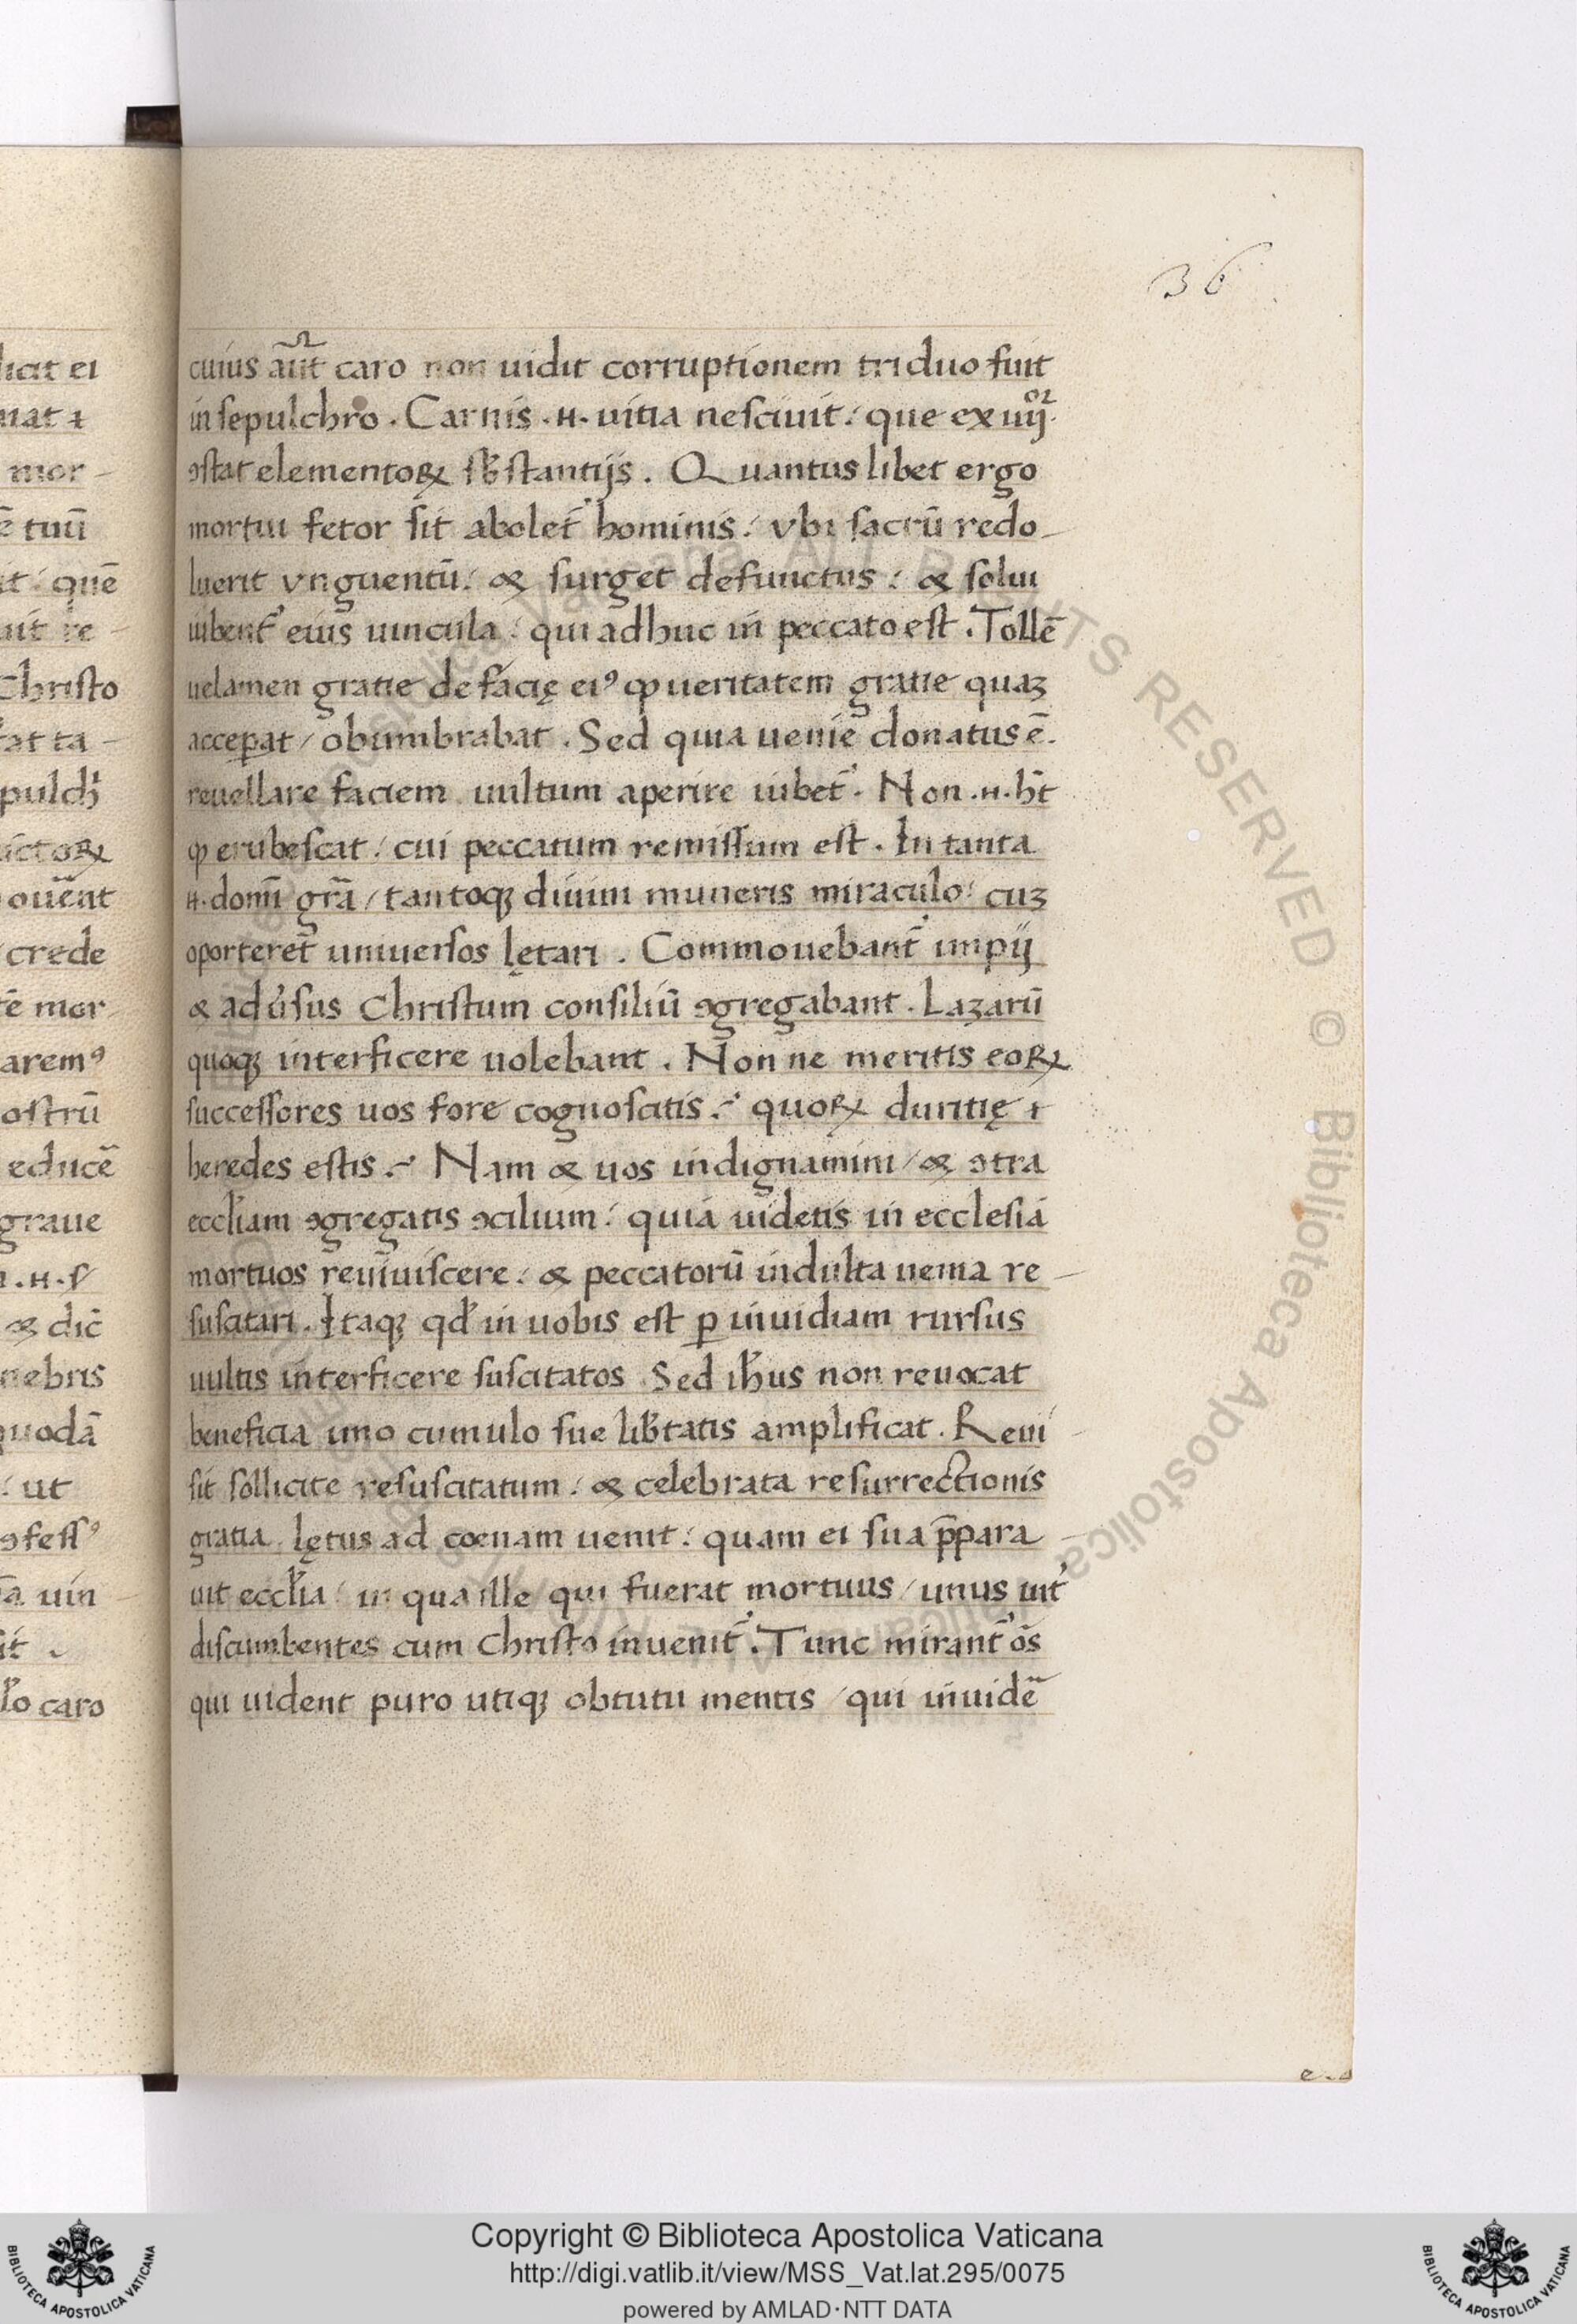 36
cuius aūt caro non uidit corruptionem triduo fuit
in sepulchro. Carnis .н. uitia nesciuit: que ex iiijor
ꝯstat elementoꝝ sƀstantijs. Quantus libet ergo
mortui fetor sit abolet᷑ hominis: vbi sacrū redo-
luerit vnguentū: & surget defunctus: & solui
iubent᷑ eius uincula: qui adhuc in peccato est. Tollē
uelamen gratie de facię eiꝰ ꝙ ueritatem gratie quaꝫ
acceꝑat / obumbrabat. Sed quia uenie donatus ē.
reuellare faciem uultum aperire iubet᷑. Non .н. hт̄
ꝙ erubescat: cui peccatum remissum est. In tanta
.н. domī grā / tantoqꝫ diuini muneris miraculo: cuꝫ
oporteret uniuersos lętari. Commouebant᷑ impij
& adu᷑sus Christum consiliū ꝯgregabant. Lazarū
quoqꝫ interficere uolebant. Non ne meritis eoꝝ
successores uos fore cognoscitis? quoꝝ duritię ⁊
heredes estis? Nam & uos indignamini / & ꝯtra
eccl̄iam ꝯgregatis ꝯcilium: quia uidetis in ecclesia
mortuos reuiuiscere: & peccatorū indulta uenia re-
suscitari. Itaqꝫ qđ in uobis est ꝑ inuidiam rursus
uultis interficere suscitatos Sed ih̄us non reuocat
beneficia imo cumulo sue lib̄tatis amplificat. Reui-
sit sollicite resuscitatum: & celebrata resurrectionis
gratia lętus ad coenam uenit: quam ei sua p̄para-
uit eccl̄ia: in qua ille qui fuerat mortuus / unus int᷑
discumbentes cum Christo inuenit᷑. Tunc mirant᷑ oс̄s
qui uident puro utiqꝫ obtutu mentis / qui inuidē
Copyright © Biblioteca Apostolica Vaticana
http://digi.vatlib.it/view/MSS_Vat.lat.295/0075
powered by AMLAD·NTT DATA